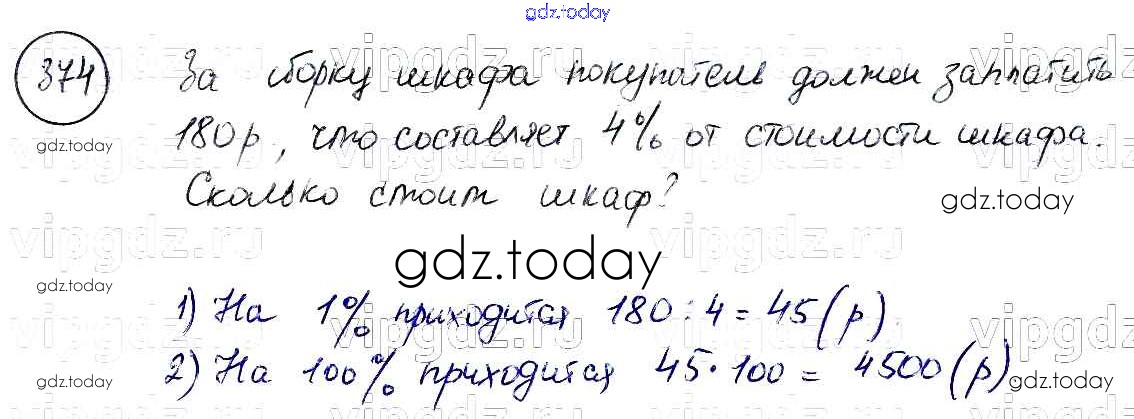 gdz.today
374
За сборку шкафа покупатель должен заплатить
gdz.today
180р, что составляет 4% от стоимости шкафа.
Сколько стоит шкаф?
gdz.today
gdz.today
gdz.today
1) На 1% приходится 180 : 4 = 45 (р)
2) На 100% приходится 45 · 100 = 4500 (р)
gdz.today
gdz.today
vipgdz.ru
vipgdz.ru
vipgdz.ru
vipgdz.ru
vipgdz.ru
vipgdz.ru